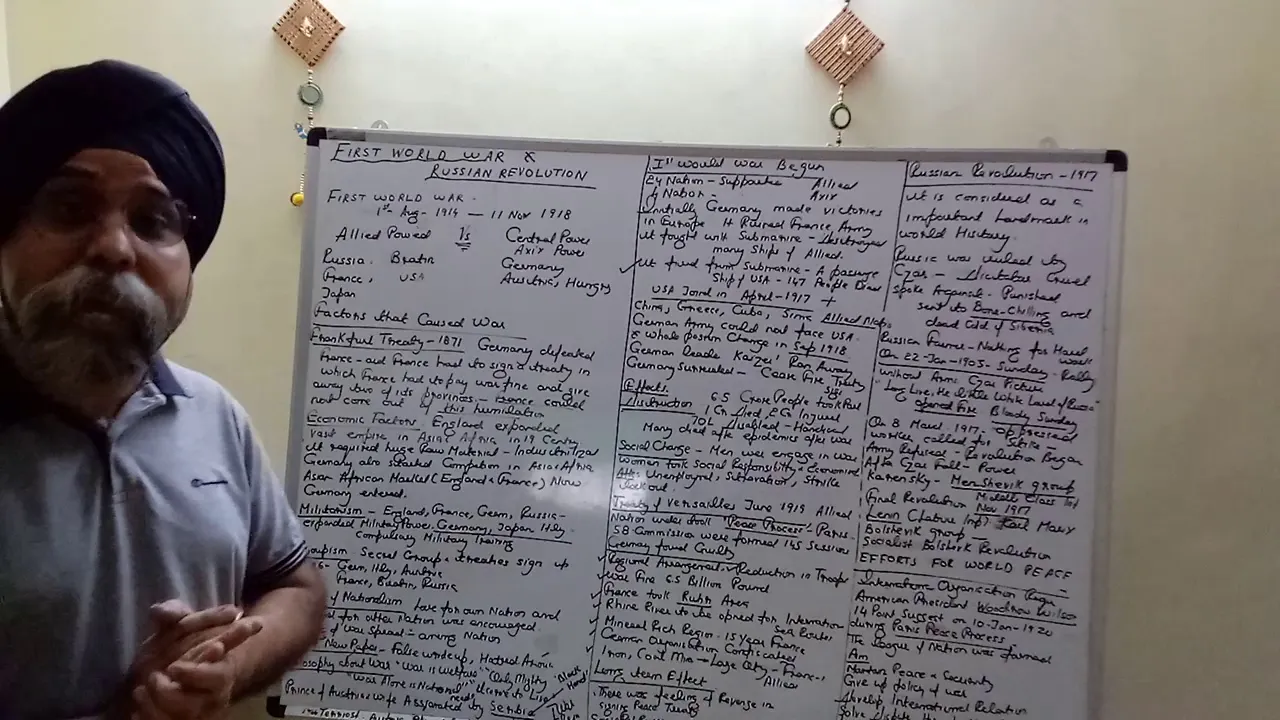 FIRST WORLD WAR &
RUSSIAN REVOLUTION
FIRST WORLD WAR -
1st Aug - 1914 - 11 Nov 1918
Allied Powed Vs Central Power
Axix Power
Russia. Bratin Germany
France, USA Austria, Hungry
Japan
Factors that Caused War
Frankfurt Treaty - 1871 Germany defeated
France - and France had to sign a treaty in
which France had to pay war fine and give
away two of its provinces - France could
not come out of this humilation
Economic Factors England expanded
vast empire in Asia & Africa in 19 Century
It required huge Raw Material - Industrilized
Germany also started Competion in Asia & Africa
Asian African Market (England & France) Now
Germany entered.
Militarism - England, France, Germ, Russia -
expanded Military Power, Germany, Japan Itly -
Compulsary Military Training
Groupism Secret Group & treaties sign up
Germ, Itly, Austria
France, Bratin, Russia
of Nationalism Love for own Nation and
for other Nation was encouraged
of War Spread - among Nation
New Paper - False writeup, Hatred
about War "War is welfare"
"War Alone is National"
Prince of Austria & wife Assasinated by Serbia
Ist World War Begun
24 Nation - Supported Allied
4 Nation - Axix
Initially Germany made victories
in Europe It Ruined France, Army
It fought with Submarine - Distroyed
many Ships of Allied.
It fired from Submarine - A passage
Ship of USA - 147 People Dead
USA Joined in April - 1917 +
China, Greece, Cuba, Allied
German Army could not face USA.
& whole position Change in Sep 1918
German leade Kaizer Ran Away
Germany Surrended - Cease Fire Treaty
Sign
Effects
Distruction 6.5 Crore People took Part
1 Cr Died, 2 Cr Injured
70L Disabled - Handicad
Many died after epidemics after war
Social Change - Men was engage in war
Women took Social Responsiblity & Economical
Unemployment, Sutarvation, Strike
lockout
Treaty of Versailles June 1919 Allied
Nation under took Peace Process - Paris -
58 Commission were formed 145 Session
Germany found Guilty
Regional Arrangement, Reduction in Troops
War Fine 6.5 Billion Pound
France took Ruhh Area
Rhine River to be opened for Internation
Sea Routes
Mineral Rich Region - 15 year France
German Organisation Confiscated
Iron, Coal - France
Allied
Long term Effect
There was feeling of Revenge in
signing Peace Treaty
Russian Revolution - 1917
It is considered as a
important landmark in
world History.
Russia was ruled by
Czar - Dictator Cruel
spoke Against - Punished
sent to Bone-Chilling and
dead Cold of Siberia
Russian Farmer - Nothing for Hard
work
On 22-Jan-1905 - Sunday - Rally
without Arms Czar Picture
"Long Live, the little White of Russia"
Opened Fire Bloody Sunday
On 8 March 1917. oppressed
worker called for Strike
Army Refused - Revolution Began
After Czar Fall - Power
Karensky - Menshevik group
Middle Class
Final Revolution Nov 1917
Lenin Karl Marx
Bolshevik group -
Socialist Bolshevik Revolution
EFFORTS FOR WORLD PEACE
International Organisation
American President Woodrow Wilson
14 Point Suggest on 10-Jan-1920
during Paris Peace Process
The League of Nation was formed
Aim
Maintan Peace & Security
Give up policy of war
Develop International Relation